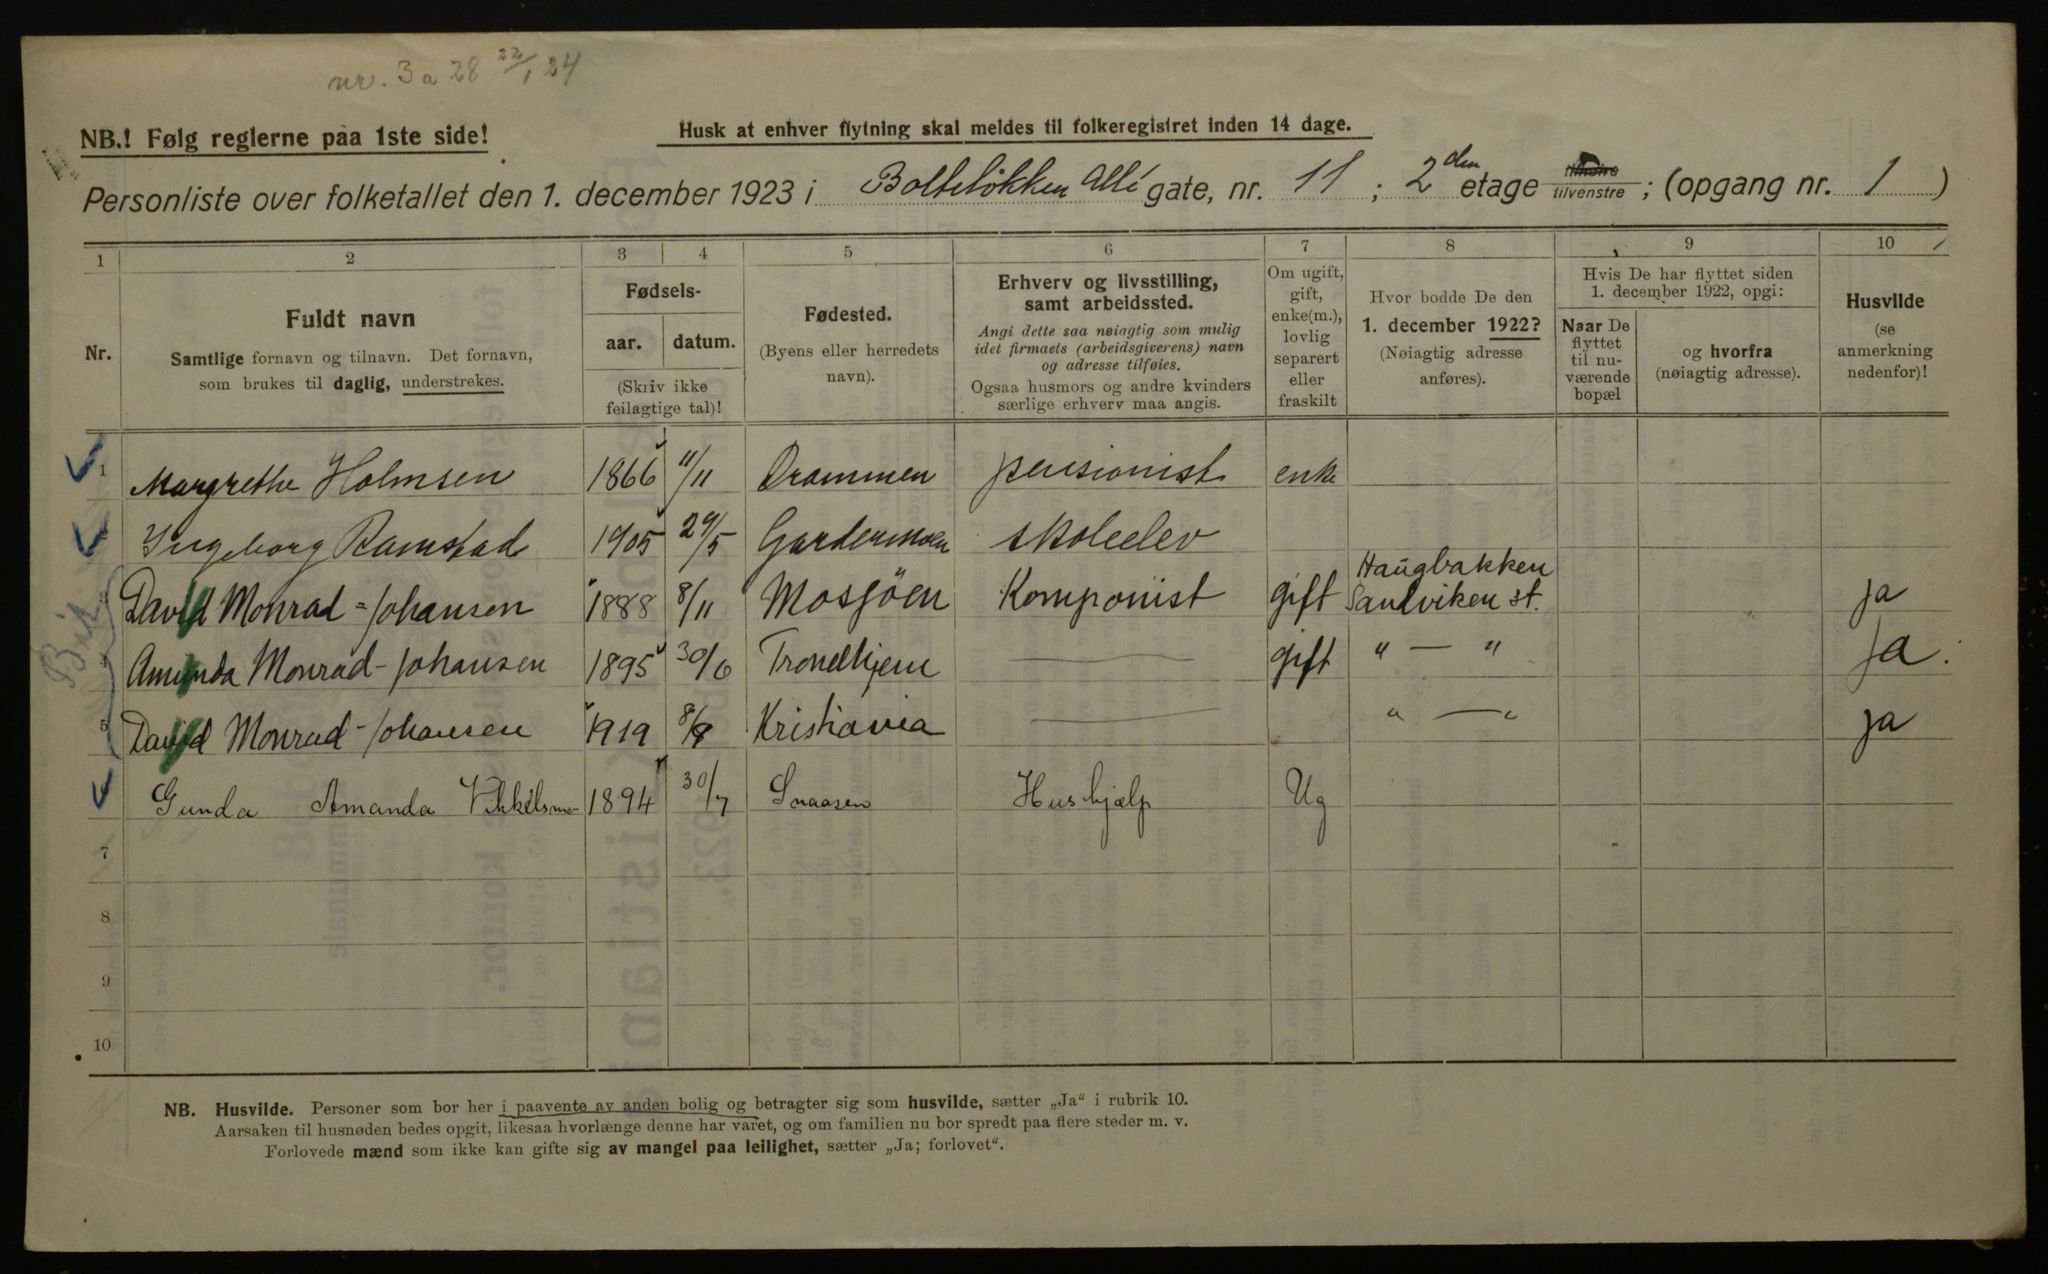 nr. 3a 28 22/1 24
NB.! Følg reglerne paa 1ste side!
Husk at enhver flytning skal meldes til folkeregistret inden 14 dage.
Personliste over folketallet den 1. december 1923 i Bolteløkken Allé gate, nr. 11; 2den etage tilhøire tilvenstre; (opgang nr. 1)
1 2 3 4 5 6 7 8 9 10
Nr.
Fuldt navn
Samtlige fornavn og tilnavn. Det fornavn,
som brukes til daglig, understrekes.
Fødsels-
aar. datum.
(Skriv ikke
feilagtige tal)!
Fødested.
(Byens eller herredets
navn).
Erhverv og livsstilling,
samt arbeidssted.
Angi dette saa nøiagtig som mulig
idet firmaets (arbeidsgiverens) navn
og adresse tilføies.
Ogsaa husmors og andre kvinders
særlige erhverv maa angis.
Om ugift,
gift,
enke(m.),
lovlig
separert
eller
fraskilt
Hvor bodde De den
1. december 1922?
(Nøiagtig adresse
anføres).
Hvis De har flyttet siden
1. december 1922, opgi:
Naar De
flyttet
til nu-
værende
bopæl
og hvorfra
(nøiagtig adresse).
Husvilde
(se
anmerkning
nedenfor)!
1 Margrethe Holmsen 1866 11/11 Drammen pensionist enke
Ingeborg Ramstad 1905 29/5 Gardermoen skoleelev
3 David Monrad-Johansen 1888 8/11 Mosjöen Komponist gift Haugbakken Sandviken st. ja
4 Amunda Monrad-Johansen 1895 30/6 Trondhjem — gift " — " Ja.
5 David Monrad-Johansen 1919 8/9 Kristiania — " — " ja
Gunda Amanda 1894 30/7 Snaasen Hushjælp Ug
7
8
9
10
NB. Husvilde. Personer som bor her i paavente av anden bolig og betragter sig som husvilde, sætter „Ja“ i rubrik 10.
Aarsaken til husnøden bedes opgit, likesaa hvorlænge denne har varet, og om familien nu bor spredt paa flere steder m. v.
Forlovede mænd som ikke kan gifte sig av mangel paa leilighet, sætter „Ja; forlovet“.